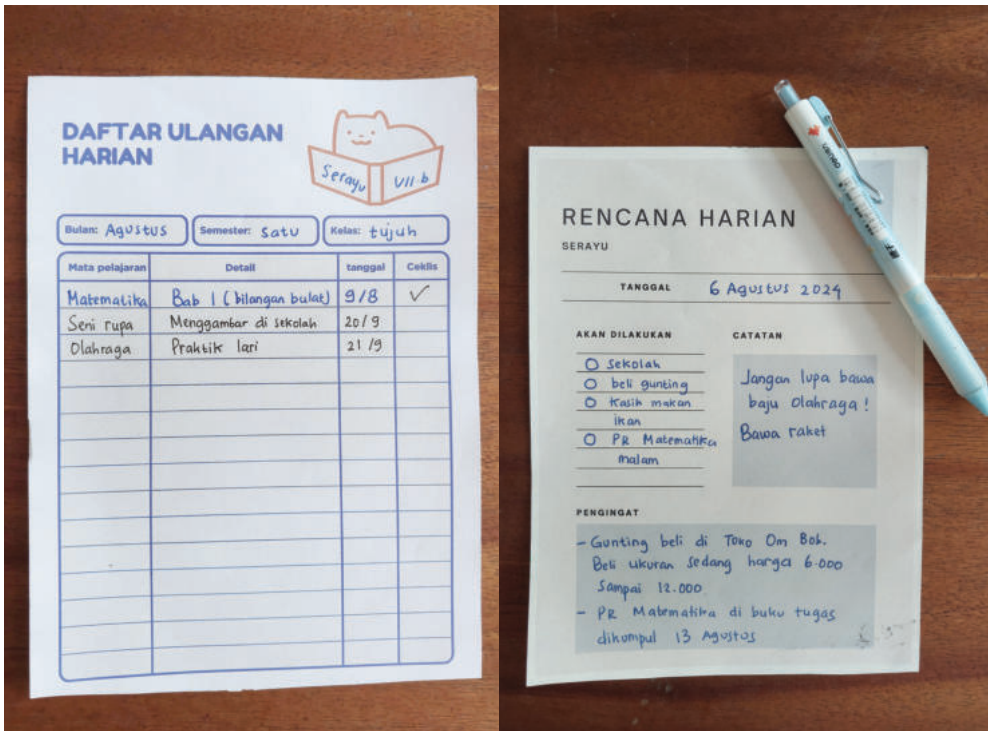 DAFTAR ULANGAN
HARIAN
Serayu VII-b
Bulan: Agustus Semester: satu Kelas: tujuh
Mata pelajaran Detail tanggal Ceklis
Matematika Bab 1 (bilangan bulat) 9/8 ✓
Seni rupa Menggambar di sekolah 20/9
Olahraga Praktik lari 21/9
RENCANA HARIAN
SERAYU
TANGGAL 6 Agustus 2024
AKAN DILAKUKAN
O sekolah
O beli gunting
O Kasih makan
ikan
O PR Matematika
malam
CATATAN
Jangan lupa bawa
baju Olahraga!
Bawa raket
PENGINGAT
- Gunting beli di Toko Om Bob.
Beli ukuran sedang harga 6.000
Sampai 12.000
- PR Matematika di buku tugas
dikumpul 13 Agustus